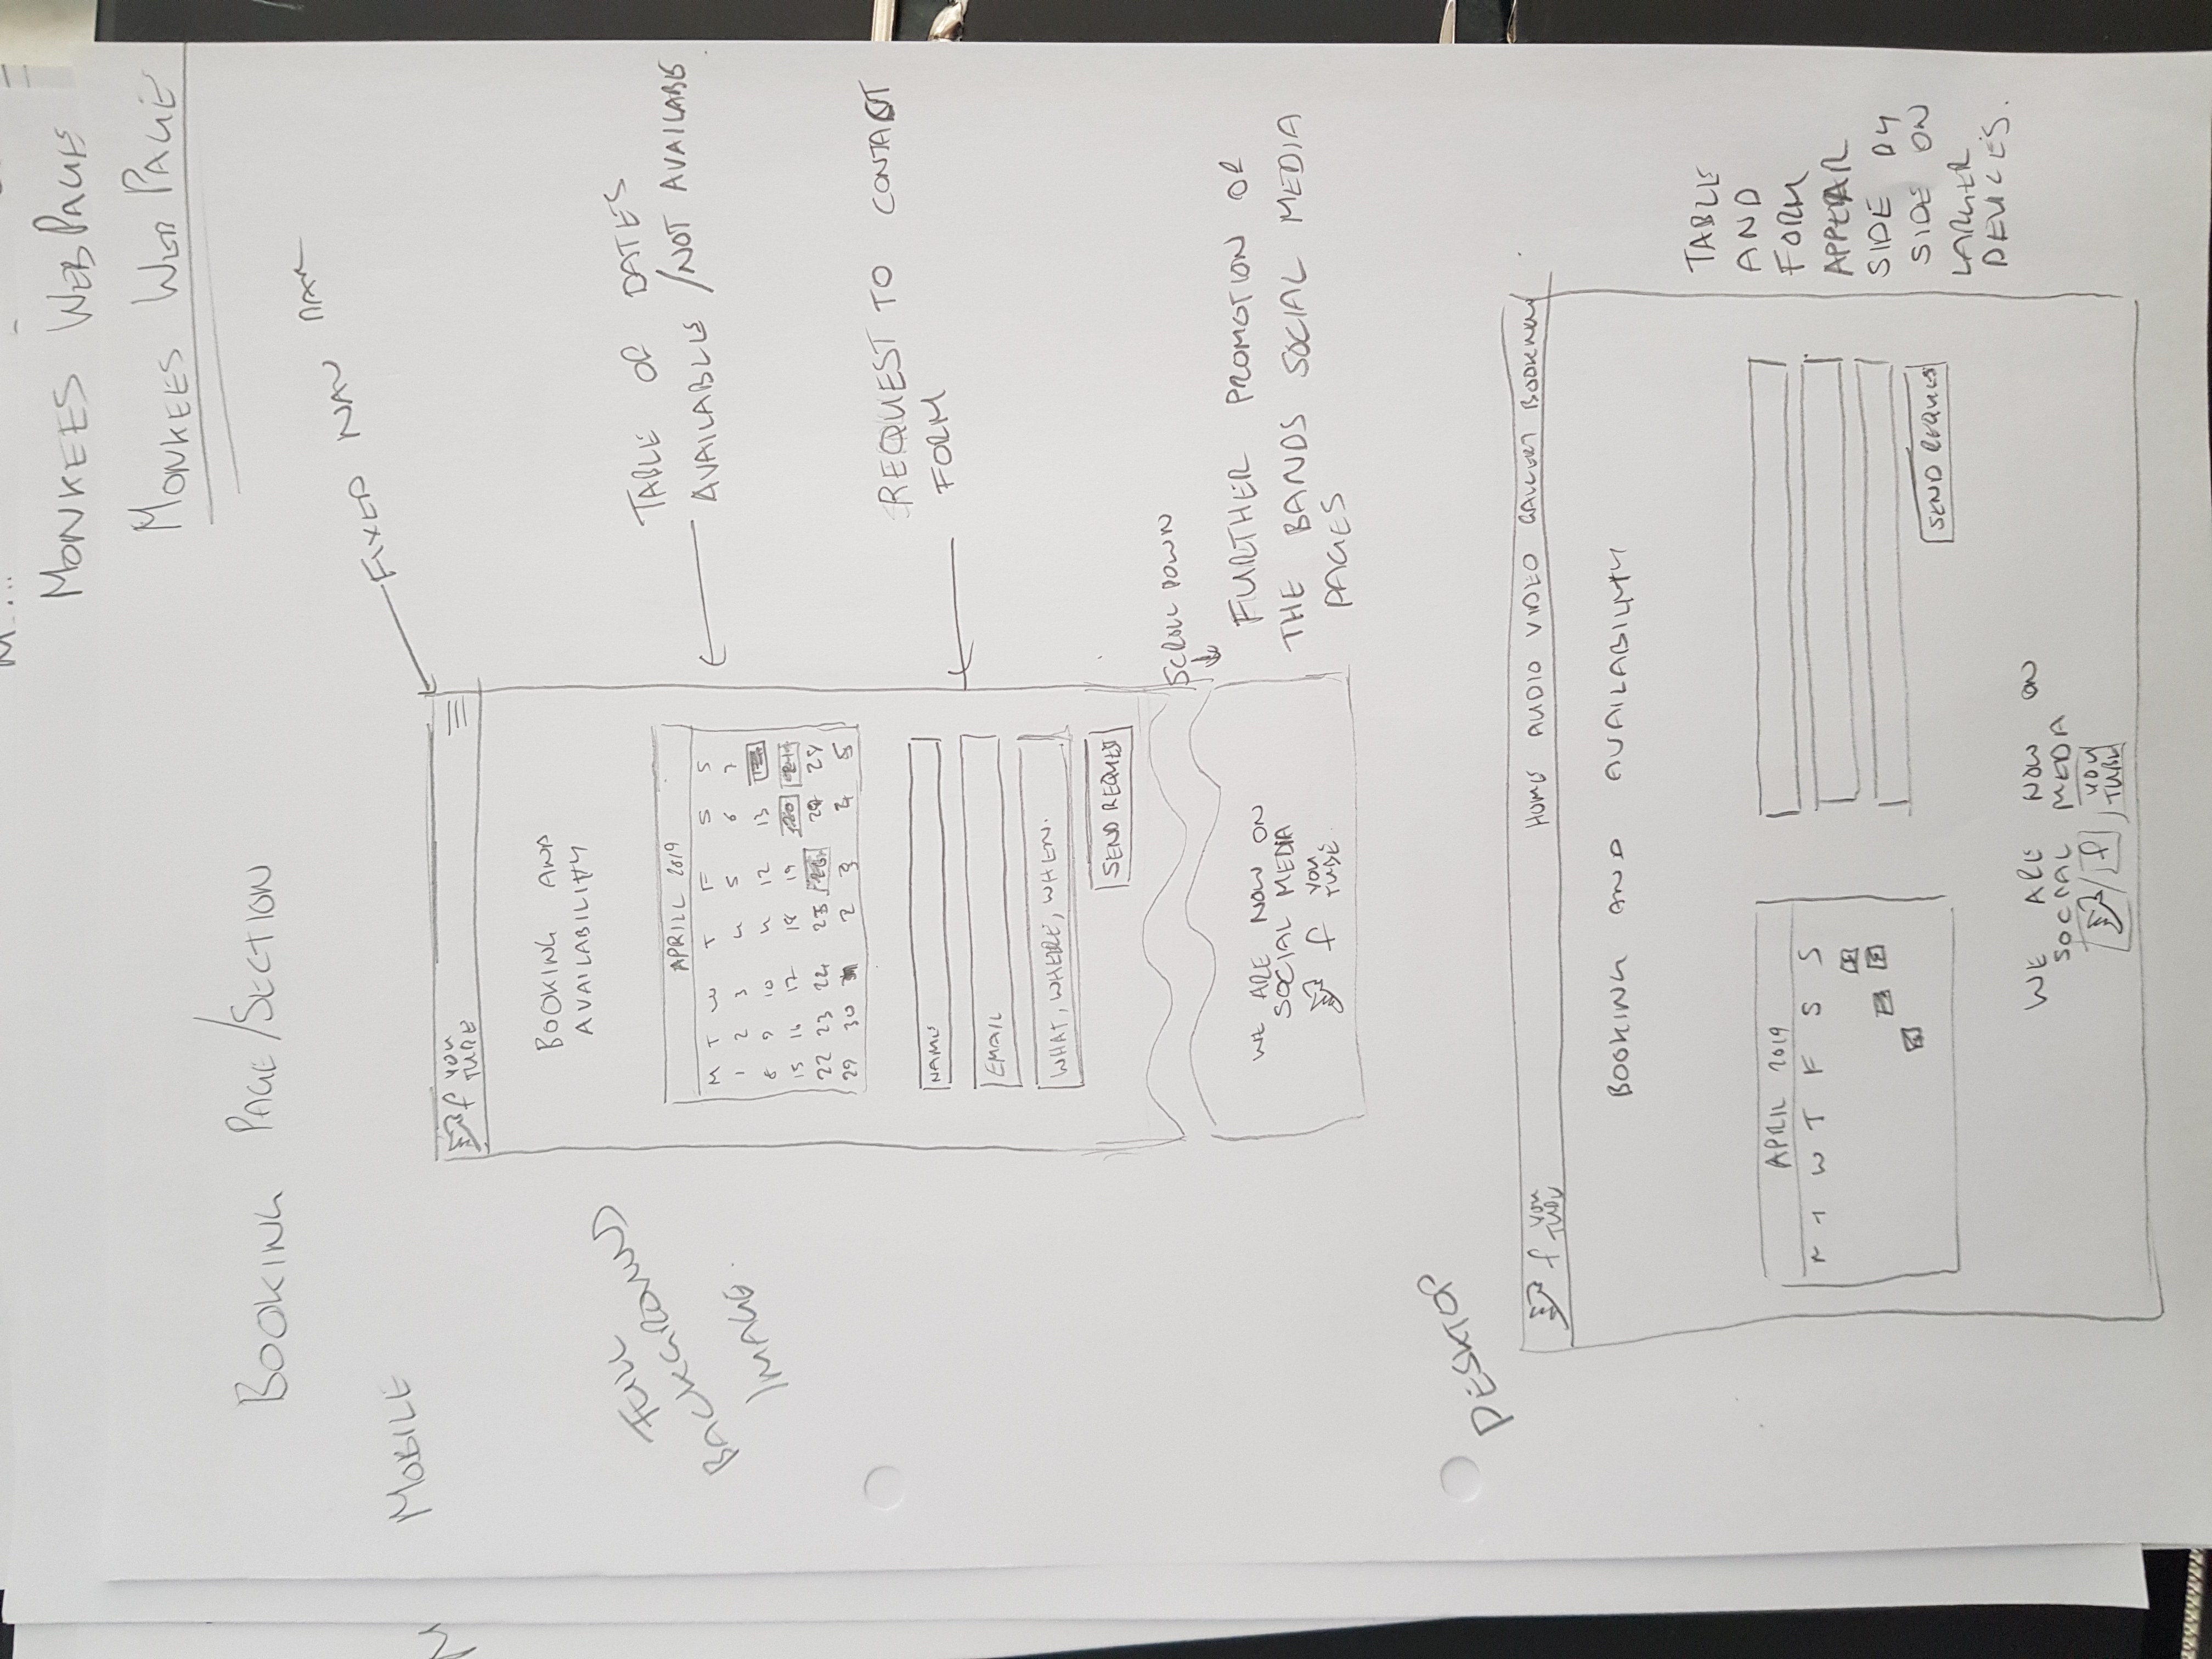 MONKEES WEB PAGE
MONKEES WEB PAGE
BOOKING PAGE/SECTION
MOBILE
FIXED NAV BAR
f YOU
TUBE
BOOKING AND
AVAILABILITY
FULL
BACKGROUND
IMAGE.
TABLE OF DATES
AVAILABLE /NOT AVAILABE
APRILL 2019
M T W T F S S
1 2 3 4 5 6 7
8 9 10 11 12 13
15 16 17 18 19 20 21
22 23 24 25 26 27 28
29 30 2 3 4 5
REQUEST TO CONTACT
FORM
NAME
EMAIL
WHAT, WHERE, WHEN.
SEND REQUEST
SCROLL DOWN
FURTHER PROMOTION OF
THE BANDS SOCIAL MEDIA
PAGES
WE ARE NOW ON
SOCIAL MEDIA
f YOU
TUBE
DESKTOP
f YOU
TUBE
HOME AUDIO VIDEO GALLERY BOOKING
BOOKING AND AVAILABILITY
APRIL 2019
M T W T F S S
SEND REQUEST
TABLE
AND
FORM
APPEAR
SIDE BY
SIDE ON
LARGER
DEVICES.
WE ARE NOW ON
SOCIAL MEDA
f YOU
TUBE